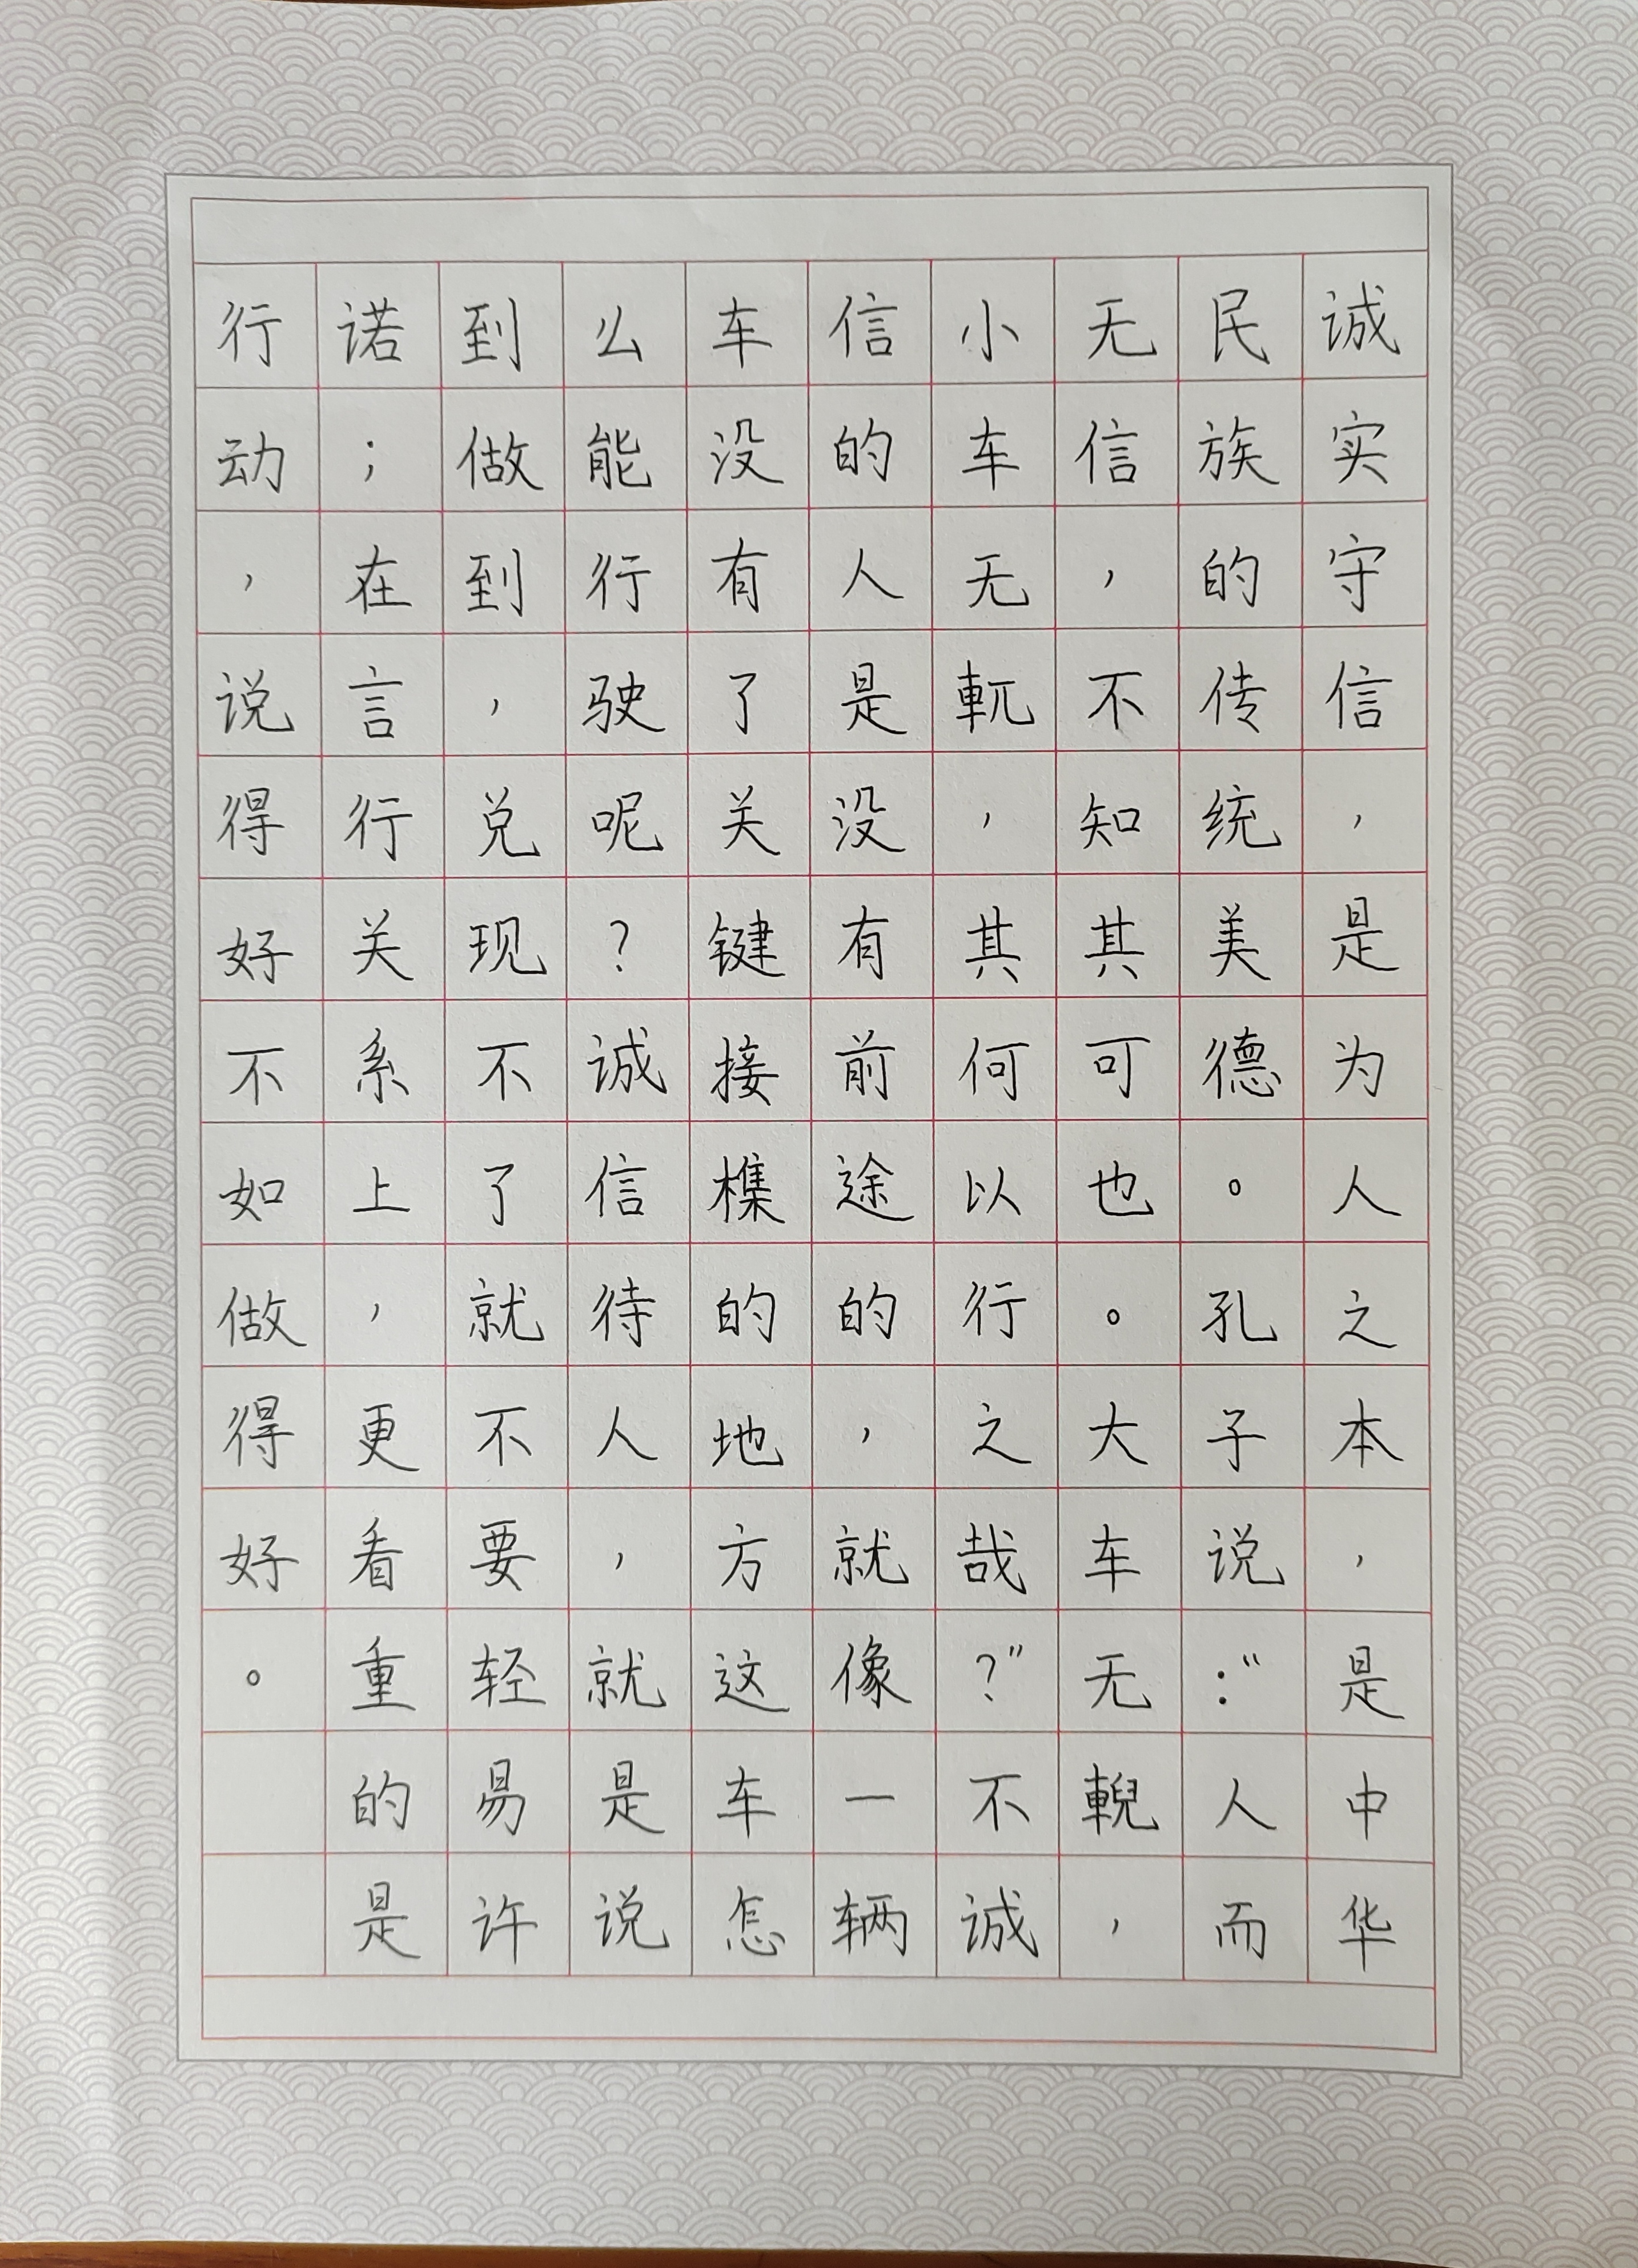 诚实守信，是为人之本，是中华
民族的传统美德。孔子说：“人而
无信，不知其可也。大车无輗，
小车无軏，其何以行之哉？”不诚
信的人是没有前途的，就像一辆
车没有了关键接榫的地方这车怎
么能行驶呢？诚信待人，就是说
到做到，兑现不了就不要轻易许
诺；在言行关系上，更看重的是
行动，说得好不如做得好。